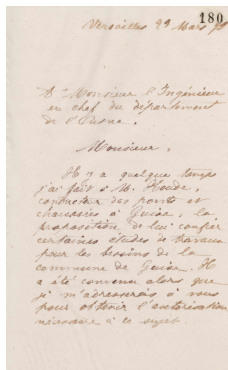 180
Versailles 29 Mars
A Monsieur l'Ingénieur
en chef du département
de l'Aisne.
Monsieur,
Il y a quelque temps
j'ai fait à M.
conducteur des ponts et
chaussées à Guise, la
proposition de lui confier
certaines études de travaux
pour les besoins de la
commune de Guise. Il
a été convenu alors que
je m'adresserais à vous
pour obtenir l'autorisation
nécessaire à ce sujet.